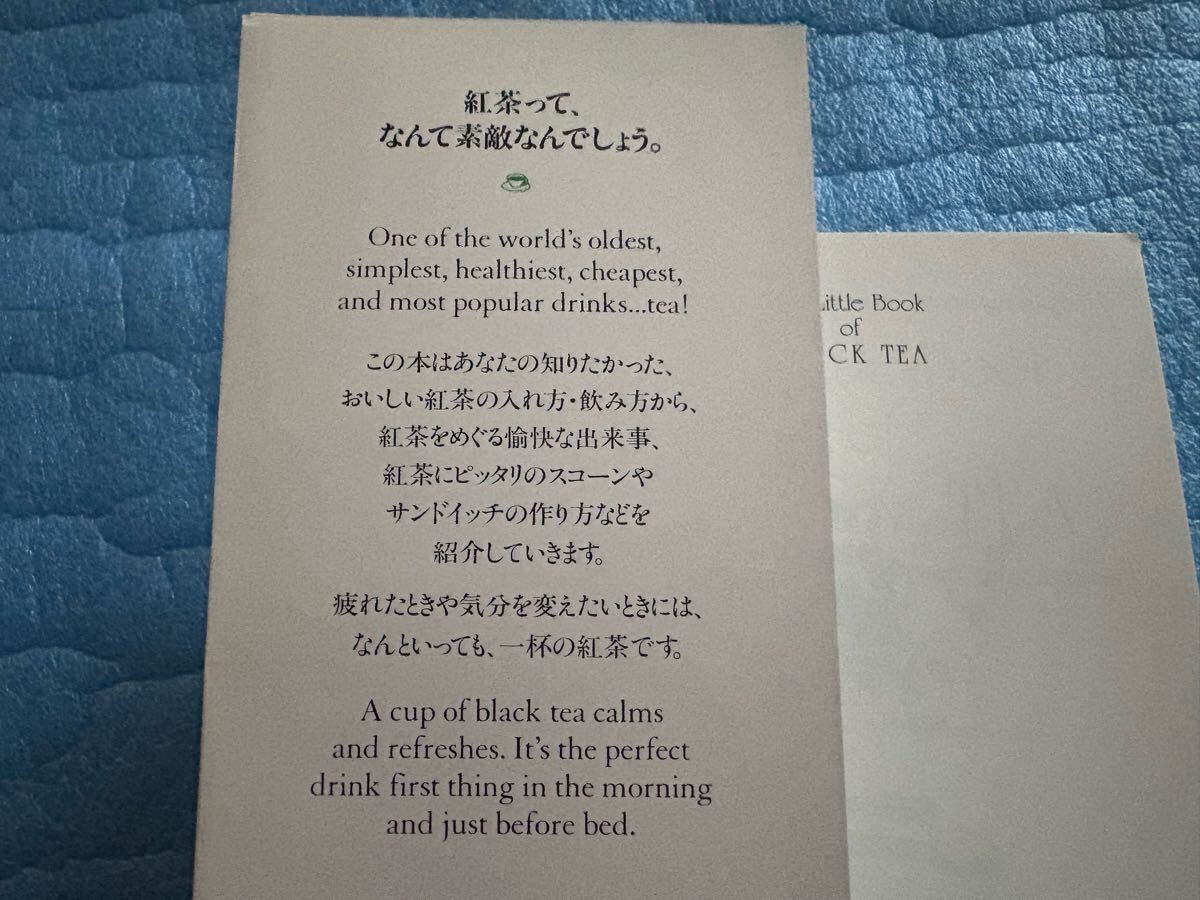 紅茶って、
なんて素敵なんでしょう。
One of the world's oldest,
simplest, healthiest, cheapest,
and most popular drinks...tea!
この本はあなたの知りたかった、
おいしい紅茶の入れ方・飲み方から、
紅茶をめぐる愉快な出来事、
紅茶にピッタリのスコーンや
サンドイッチの作り方などを
紹介していきます。
疲れたときや気分を変えたいときには、
なんといっても、一杯の紅茶です。
A cup of black tea calms
and refreshes. It's the perfect
drink first thing in the morning
and just before bed.
Little Book
of
CK TEA